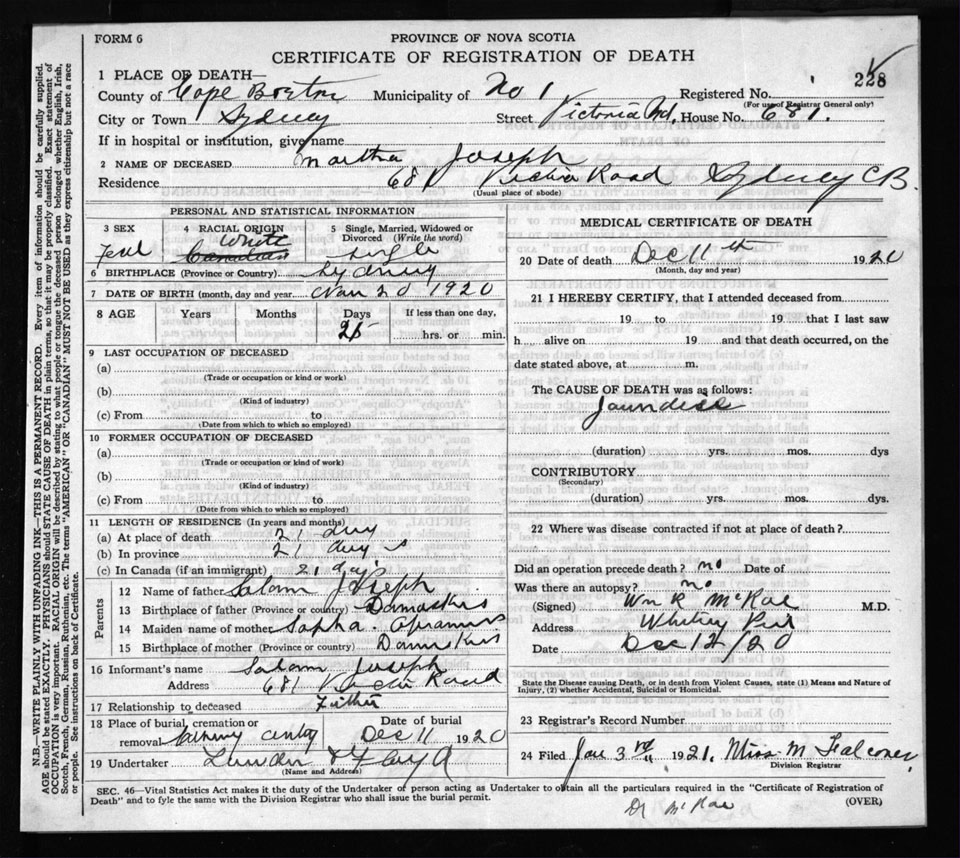 FORM 6
PROVINCE OF NOVA SCOTIA
CERTIFICATE OF REGISTRATION OF DEATH
228
1 PLACE OF DEATH—
County of Cape Breton Municipality of No 1 Registered No.
(For use of Registrar General only)
City or Town Sydney Street Victoria Rd. House No. 681.
If in hospital or institution, give name
2 NAME OF DECEASED Martha Joseph
Residence 681 Victoria Road Sydney C B.
(Usual place of abode)
PERSONAL AND STATISTICAL INFORMATION
3 SEX 4 RACIAL ORIGIN 5 Single, Married, Widowed or
Divorced (Write the word)
Fem White Canadian single
6 BIRTHPLACE (Province or Country) Sydney
7 DATE OF BIRTH (month, day and year) Nov 20 1920
8 AGE Years Months Days If less than one day,
hrs. or min.
9 LAST OCCUPATION OF DECEASED
(a)
(Trade or occupation or kind or work)
(b)
(Kind of industry)
(c) From to
(Date from which to which so employed)
10 FORMER OCCUPATION OF DECEASED
(a)
(Trade or occupation or kind of work)
(b)
(Kind of industry)
(c) From to
(Date from which to which so employed)
11 LENGTH OF RESIDENCE (In years and months)
(a) At place of death 21 day
(b) In province 21 days
(c) In Canada (if an immigrant) 21 days
Parents
12 Name of father Salom Joseph
13 Birthplace of father (Province or country) Damaskus
14 Maiden name of mother Sopha
15 Birthplace of mother (Province or country) Damaskus
16 Informant's name Salom Joseph
Address 681 Victoria Road
17 Relationship to deceased Father
18 Place of burial, cremation or Date of burial
removal Dec 11 1920
19 Undertaker
(Name and Address)
MEDICAL CERTIFICATE OF DEATH
20 Date of death Dec 11th 1920
(Month, day and year)
21 I HEREBY CERTIFY, that I attended deceased from
19 to 19 that I last saw
h alive on 19 and that death occurred, on the
date stated above, at m.
The CAUSE OF DEATH was as follows:
Jaundice
(duration) yrs. mos. dys
CONTRIBUTORY
(Secondary)
(duration) yrs. mos. dys.
22 Where was disease contracted if not at place of death?
Did an operation precede death? no Date of
Was there an autopsy? no
(Signed) Wm R McRae M.D.
Address Whitney Pier
Date Dec 12/20
State the Disease causing Death, or in death from Violent Causes, state (1) Means and Nature of
Injury, (2) whether Accidental, Suicidal or Homicidal.
23 Registrar's Record Number
24 Filed Jan 3rd 1921. Miss M Falconer
Division Registrar
SEC. 46—Vital Statistics Act makes it the duty of the Undertaker of person acting as Undertaker to obtain all the particulars required in the "Certificate of Registration of
Death" and to fyle the same with the Division Registrar who shall issue the burial permit. (OVER)
Dr McRae
N.B.—WRITE PLAINLY WITH UNFADING INK—THIS IS A PERMANENT RECORD. Every item of information should be carefully supplied.
AGE should be stated EXACTLY. PHYSICIANS should STATE CAUSE OF DEATH in plain terms, so that it may be properly classified. Exact statement of
OCCUPATION is very important. RACIAL ORIGIN will be described by stating to what people or tongue the deceased person belonged whether English, Irish,
Scotch, French, German, Russian, Ruthenian, etc. The terms "AMERICAN" OR "CANADIAN" MUST NOT BE USED as they express citizenship but not a race
or people. See instructions on back of Certificate.